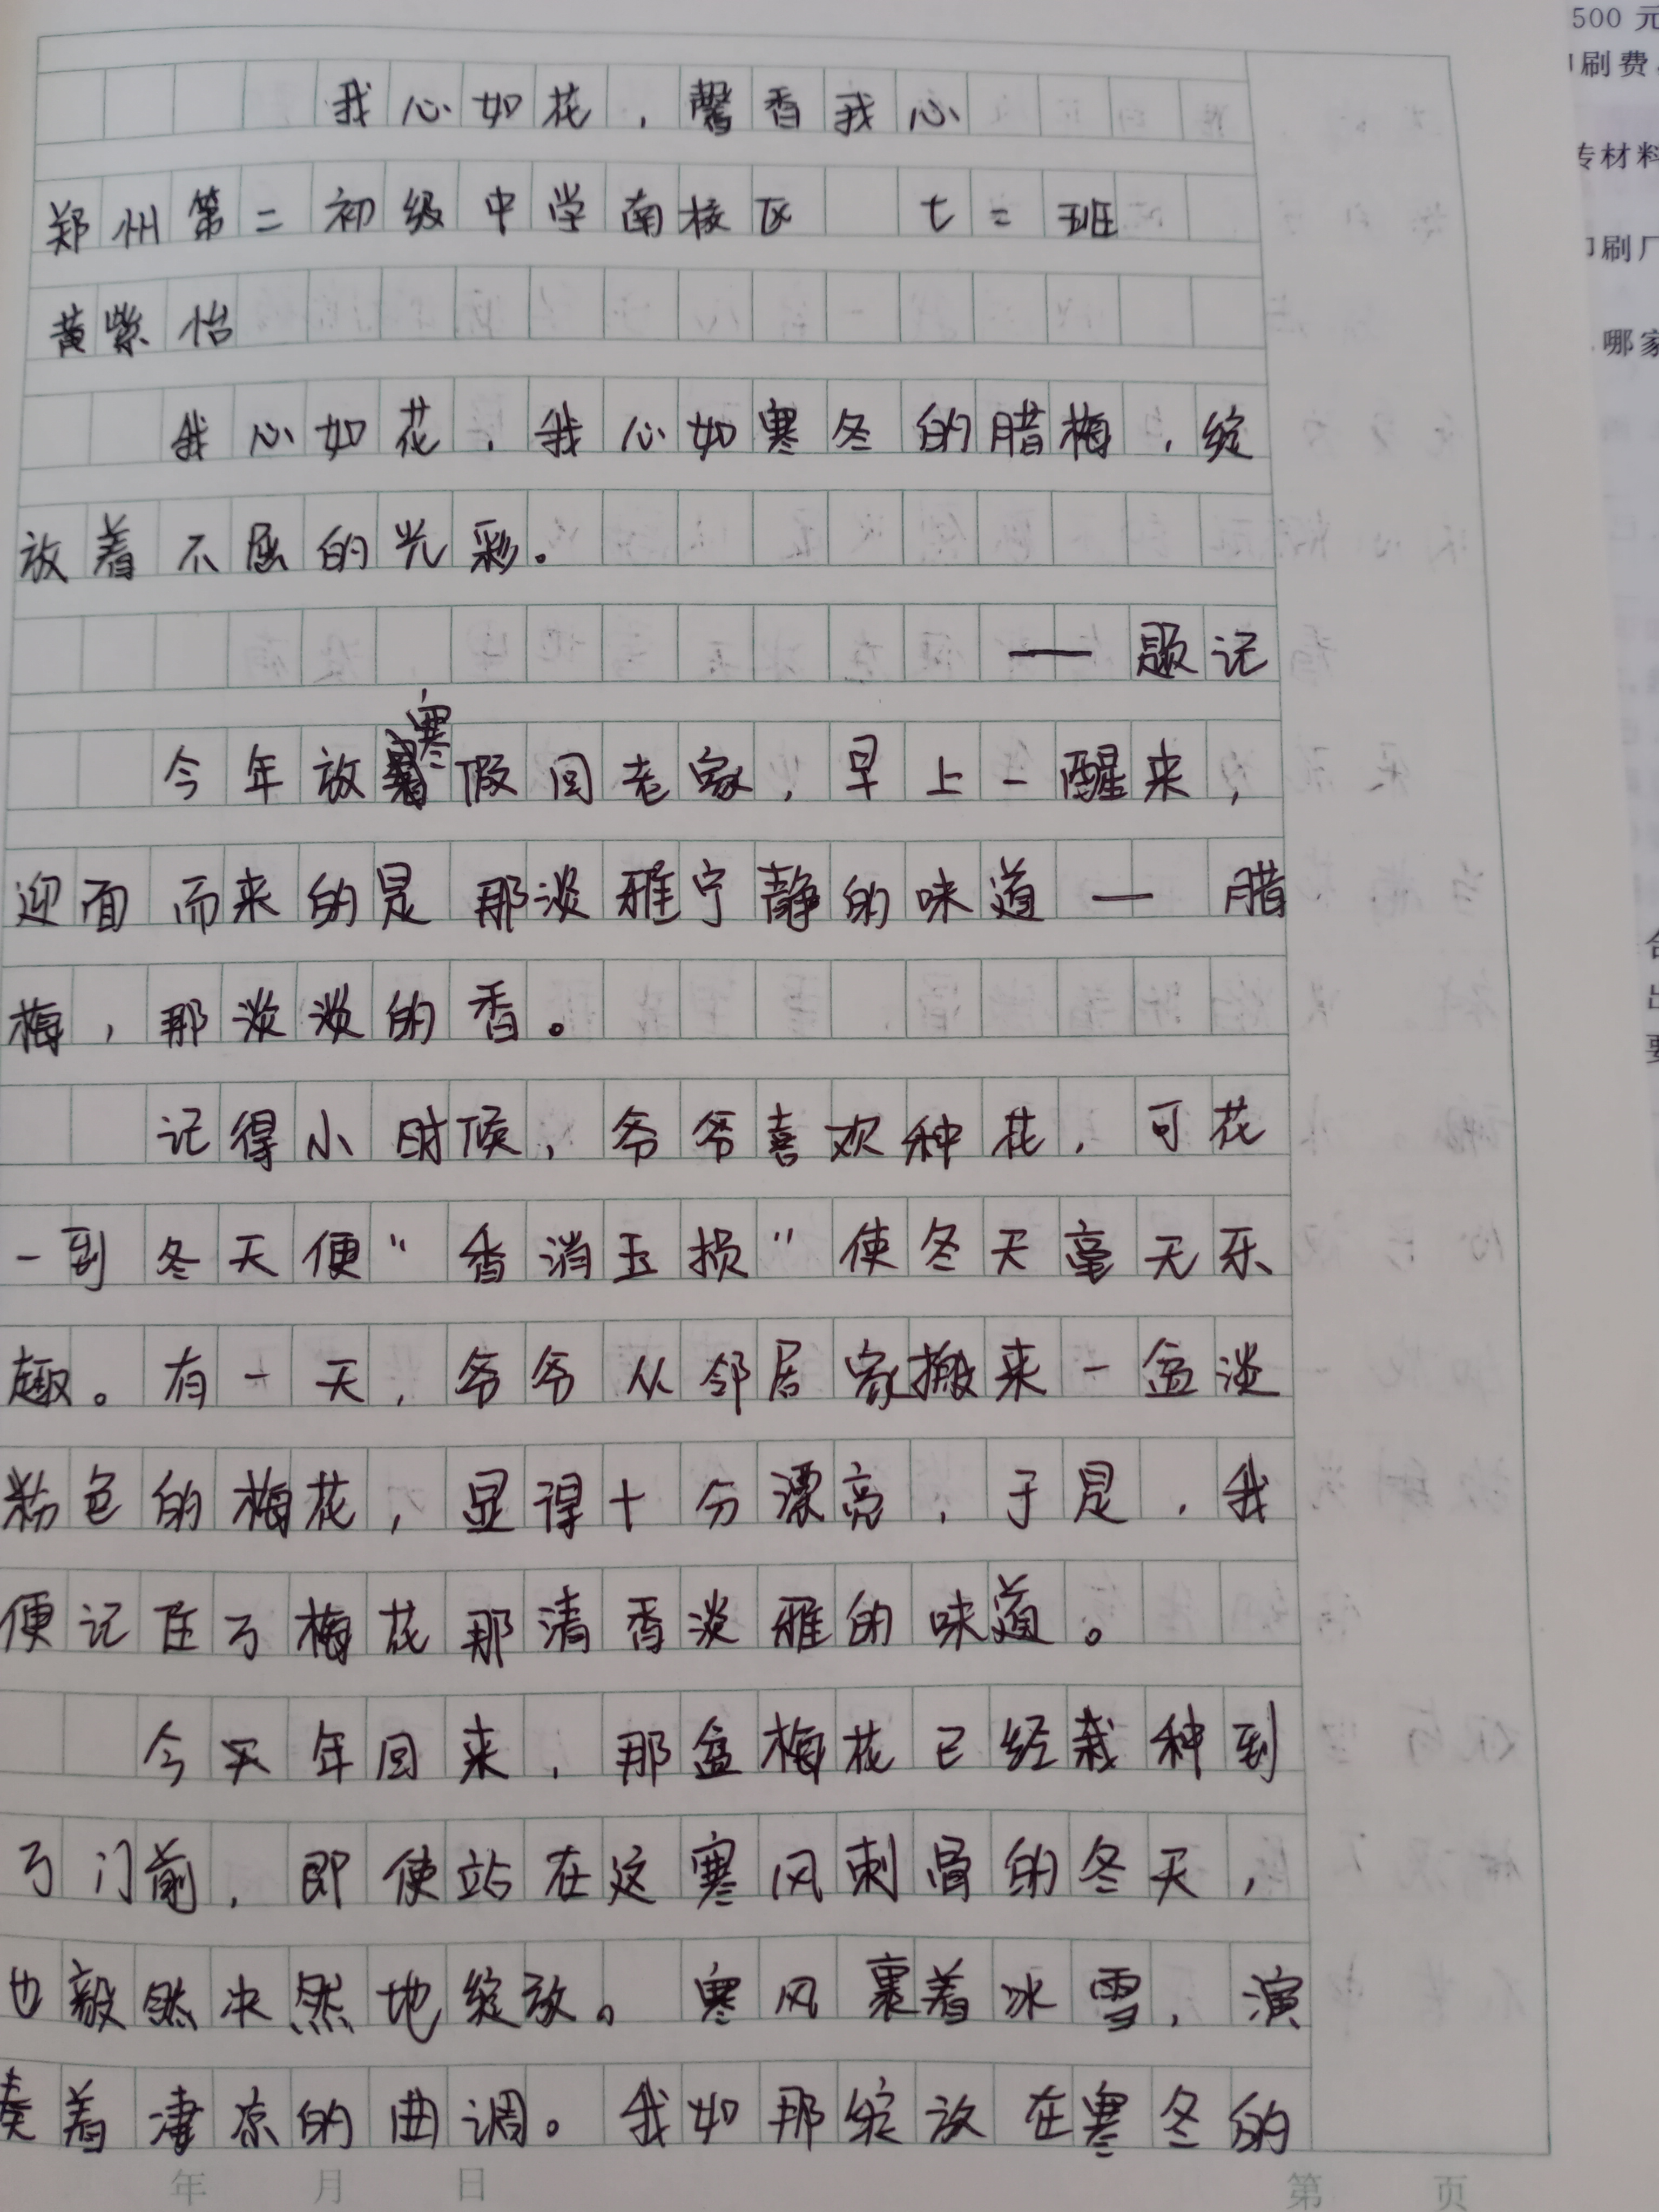 我心如花，馨香我心
郑州第二初级中学南校区 七二班
黄紫怡
我心如花，我心如寒冬的腊梅，绽
放着不屈的光彩。
——题记
今年放寒假回老家，早上一醒来，
迎面而来的是那淡雅宁静的味道——腊
梅，那淡淡的香。
记得小时候，爷爷喜欢种花，可花
一到冬天便“香消玉损”使冬天毫无乐
趣。有一天，爷爷从邻居家搬来一盆淡
粉色的梅花，显得十分漂亮，于是，我
便记住了梅花那清香淡雅的味道。
今天年回来，那盆梅花已经栽种到
了门前，即使站在这寒风刺骨的冬天，
也毅然决然地绽放。寒风裹着冰雪，演
奏着凄凉的曲调。我如那绽放在寒冬的
年 月 日 第 页
500 元
印刷费
传材料
印刷厂
哪家
要